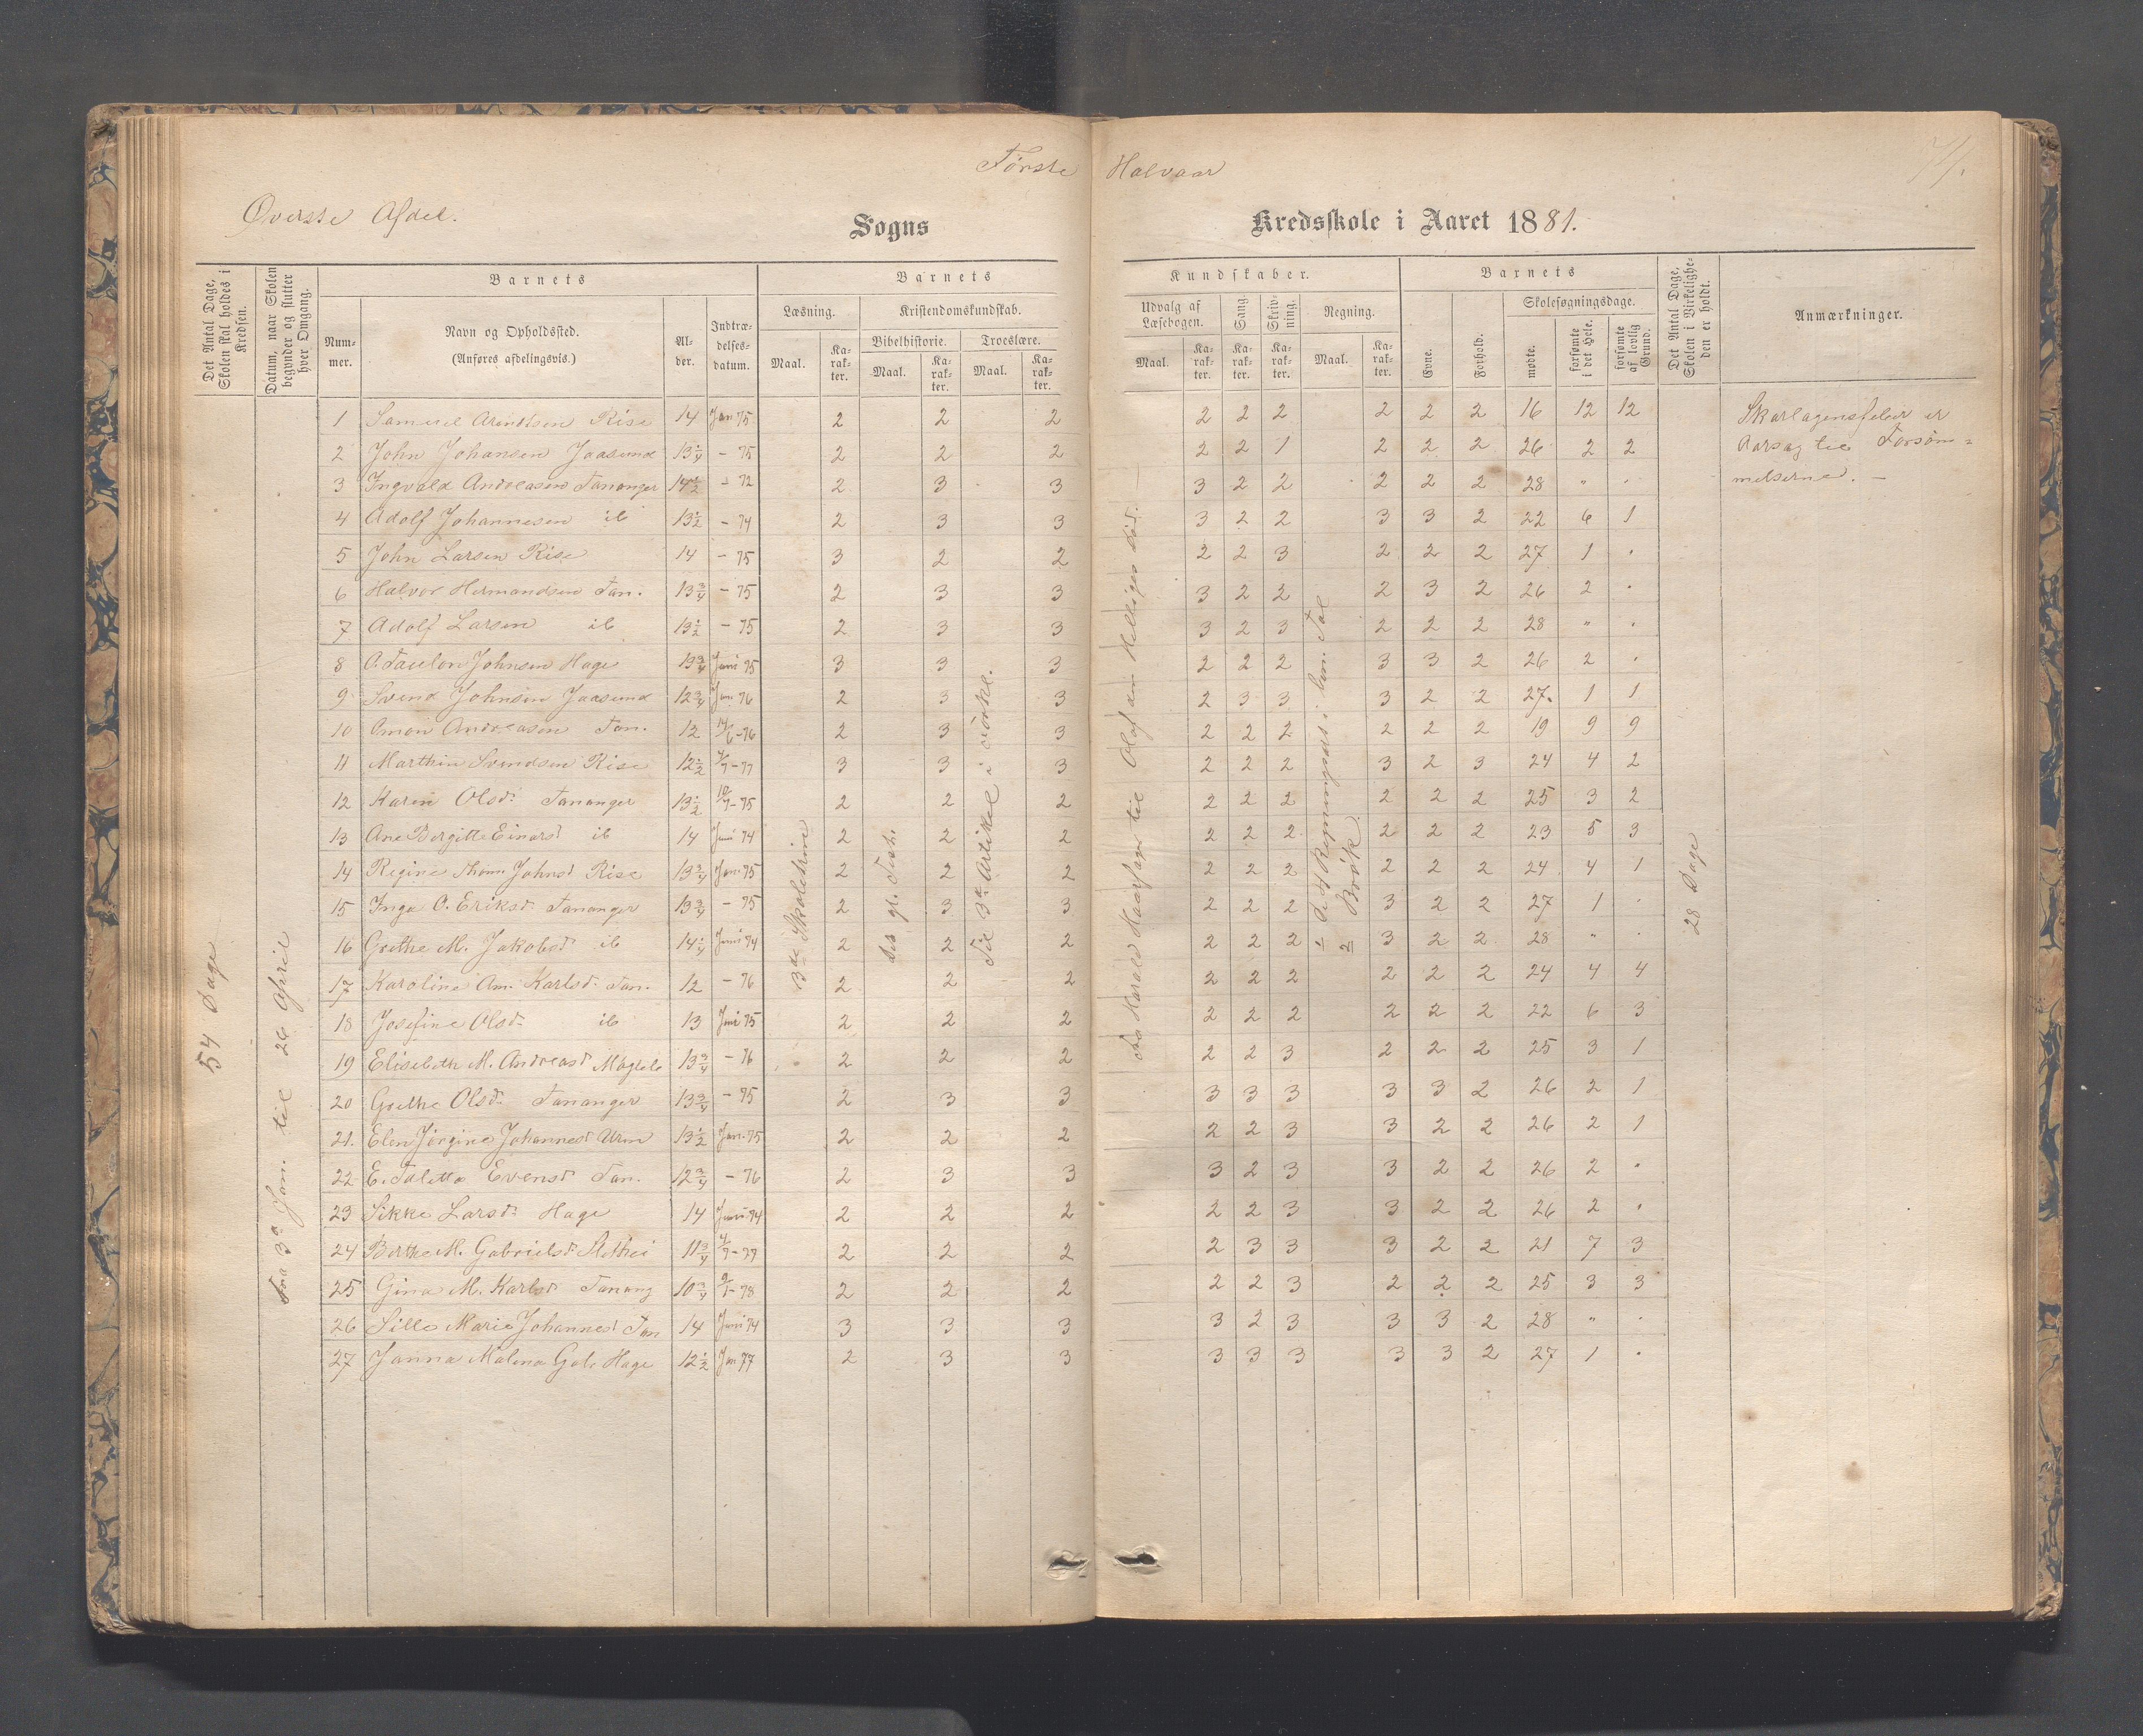 Første Halvaar
Øverste Afdel.
Sogns Kredsskole i Aaret 1881.
Det Antal Dage, Skolen skal holdes i Kredsen.
Datum, naar Skolen begynder og slutter hver Omgang.
Barnets
Nummer.
Navn og Opholdssted. (Anføres afdelingsvis.)
Alder.
Indtrædelsesdatum.
Barnets Kundskaber.
Læsning.
Maal. Karakter.
Kristendomskundskab.
Bibelhistorie.
Maal. Karakter.
Troeslære.
Maal. Karakter.
Udvalg af Læsebogen.
Maal. Karakter.
Sang. Karakter.
Skrivning. Karakter.
Regning.
Maal. Karakter.
Barnets
Evne.
Forhold.
Skolesøgningsdage.
mødte.
forsømte i det Hele.
forsømte af lovlig Grund.
Det Antal Dage, Skolen i Virkeligheden er holdt.
Anmærkninger.
54 Dage
Fra 3de Jan. til 26 April
3die Skoletrin
Til 3die Artikel i
fra Harald Haarfager til Olaf den Helliges Død.
Brøk
28 Dage
Skarlagensfeber er
Aarsag til Forsøm=
melserne. —
1 Samuel Arentsen Rise 14 Jan 75 2 2 2 2 2 2 2 2 2 16 12 12
2 John Johansen Jaasund 13¼ – 75 2 2 2 2 2 1 2 2 2 26 2 2
3 Ingvald Andreasen Tananger 14½ – 72 2 3 3 3 2 2 2 2 2 28 " .
4 Adolf Johannesen ib 13½ – 74 2 3 3 3 2 2 3 3 2 22 6 1
5 John Larsen Rise 14 – 75 3 2 2 2 2 3 2 2 2 27 1 .
6 Halvor Hermandsen Tan. 13¾ – 75 2 3 3 3 2 2 2 3 2 26 2 .
7 Adolf Larsen ib 13½ – 75 2 3 3 3 2 3 2 2 2 28 " .
8 Johnsen Hage 13¾ Juni 75 3 3 3 2 2 2 3 3 2 26 2 .
9 Svend Johnsen Jaasund 12¾ Jan. 76 2 3 3 2 3 3 3 2 2 27. 1 1
10 Andreasen Tan. 12 14/6–76 2 3 3 2 2 2 2 2 2 19 9 9
11 Marthin Svendsen Rise 12½ 4/7–77 3 3 3 2 2 2 3 2 3 24 4 2
12 Karen Olsdr Tananger 13½ 10/7–75 2 2 2 2 2 2 2 2 2 25 3 2
13 Ane Bergitte Einarsd ib 14 Juni 74 2 2 2 2 2 2 2 2 2 23 5 3
14 Regine Johnsd Rise 13¾ Jan. 75 2 2 2 2 2 2 2 2 2 24 4 1
15 Inga O. Eriksd. Tananger 13¾ – 75 2 3 3 2 2 2 3 2 2 27 1 .
16 Grethe M. Jakobsd ib 14¼ Juni 74 2 2 2 2 2 2 3 2 2 28 " .
17 Karoline Am. Karlsd. Tan. 12 – 76 2 2 2 2 2 2 2 2 2 24 4 4
18 Josefine Olsd. ib 13 Juni 75 2 2 2 2 2 2 2 2 2 22 6 3
19 Elisebeth M. Andreasd 13¾ – 76 2 2 2 2 2 3 2 2 2 25 3 1
20 Grethe Olsd. Tananger 13¾ – 75 2 3 3 3 3 3 3 3 2 26 2 1
21. Elen Jørgine Johannesd 13½ Jan. 75 2 2 2 2 2 3 3 2 2 26 2 1
22 E. Taletta Evensd Tan. 12¾ – 76 2 3 3 3 2 3 3 2 2 26 2 .
23 Sikke Larsd. Hage 14 Juni 74 2 2 2 2 2 3 3 2 2 26 2 .
24 Berthe M. Gabrielsd. 11¾ 4/7–77 2 2 2 2 3 3 3 2 2 21 7 3
25 Gina M. Karlsd Tanang 10¾ 9/1–78 2 2 2 2 2 3 2 2 2 25 3 3
26 Sille Marie Johannesd Tan 14 Juni 74 3 3 3 3 2 3 3 3 2 28 " .
27 Janna Malena Gab. Hage 12½ Jan 77 2 3 3 3 3 3 3 3 2 27 1 .